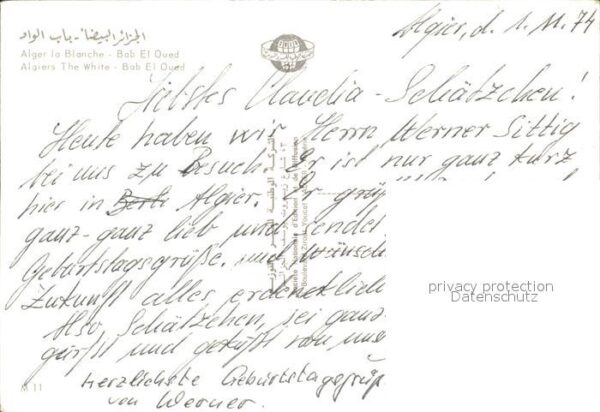 الجزائر البيضاء - باب الواد
Alger la Blanche - Bab El Oued
Algiers The White - Bab El Oued
Algier, d. 1. 11. 74
Liebstes Claudia-Schätzchen!
Heute haben wir Herrn Werner Sittig
bei uns zu Besuch. Er ist nur ganz kurz
hier in Berl Algier. Er grüß
ganz-ganz lieb und sendet
Geburtstagsgrüße. und wünsch
Zukunft alles erdenklich
Also, Schätzchen, sei ganz
und geküßt von uns
herzlichste Geburtstagsgrüß
von Werner.
privacy protection
Datenschutz
M 11